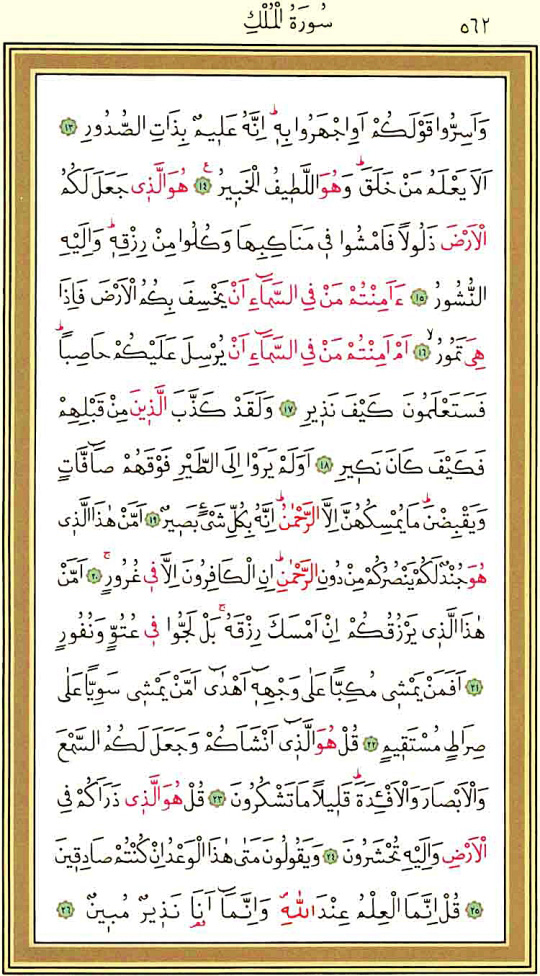 سُورَةُ الْمُلْكِ ٥٦٢
وَاَسِرُّوا قَوْلَكُمْ اَوِاجْهَرُوا بِهِۜ اِنَّهُ عَلِيمٌ بِذَاتِ الصُّدُورِ ١٣
اَلَا يَعْلَمُ مَنْ خَلَقَۜ وَهُوَ اللَّطِيفُ الْخَبِيرُ ١٤ هُوَ الَّذِى جَعَلَ لَكُمُ
الْاَرْضَ ذَلُولاً فَامْشُوا فِى مَنَاكِبِهَا وَكُلُوا مِنْ رِزْقِهِۜ وَاِلَيْهِ
النُّشُورُ ١٥ ءَاَمِنْتُمْ مَنْ فِى السَّمَٓاءِ اَنْ يَخْسِفَ بِكُمُ الْاَرْضَ فَاِذَا
هِىَ تَمُورُۙ ١٦ اَمْ اَمِنْتُمْ مَنْ فِى السَّمَٓاءِ اَنْ يُرْسِلَ عَلَيْكُمْ حَاصِباًۜ
فَسَتَعْلَمُونَ كَيْفَ نَذِيرِ ١٧ وَلَقَدْ كَذَّبَ الَّذِينَ مِنْ قَبْلِهِمْ
فَكَيْفَ كَانَ نَكِيرِ ١٨ اَوَلَمْ يَرَوْا اِلَى الطَّيْرِ فَوْقَهُمْ صَٓافَّاتٍ
وَيَقْبِضْنَۜ مَا يُمْسِكُهُنَّ اِلَّا الرَّحْمٰنُۜ اِنَّهُ بِكُلِّ شَىْءٍ بَصِيرٌ ١٩ اَمَّنْ هٰذَا الَّذِى
هُوَ جُنْدٌ لَكُمْ يَنْصُرُكُمْ مِنْ دُونِ الرَّحْمٰنِۜ اِنِ الْكَافِرُونَ اِلَّا فِى غُرُورٍۚ ٢٠ اَمَّنْ
هٰذَا الَّذِى يَرْزُقُكُمْ اِنْ اَمْسَكَ رِزْقَهُۚ بَلْ لَجُّوا فِى عُتُوٍّ وَنُفُورٍ
٢١ اَفَمَنْ يَمْشِى مُكِبًّا عَلٰى وَجْهِهِٓ اَهْدٰٓى اَمَّنْ يَمْشِى سَوِيًّا عَلٰى
صِرَاطٍ مُسْتَقِيمٍ ٢٢ قُلْ هُوَ الَّذِٓى اَنْشَاَكُمْ وَجَعَلَ لَكُمُ السَّمْعَ
وَالْاَبْصَارَ وَالْاَفْـِٔدَةَۜ قَلِيلاً مَا تَشْكُرُونَ ٢٣ قُلْ هُوَ الَّذِى ذَرَاَكُمْ فِى
الْاَرْضِ وَاِلَيْهِ تُحْشَرُونَ ٢٤ وَيَقُولُونَ مَتٰى هٰذَا الْوَعْدُ اِنْ كُنْتُمْ صَادِقِينَ
٢٥ قُلْ اِنَّمَا الْعِلْمُ عِنْدَ اللّٰهِ وَاِنَّمَٓا اَنَا نَذِيرٌ مُبِينٌ ٢٦